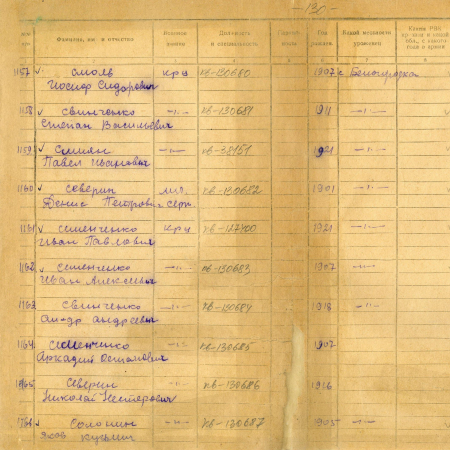 — 130 —
Фамилия, имя и отчество
Воинское звание
Должность и специальность
Год рождения
Какой местности уроженец
1157 Смоль кр-ц КВ-130680 1907 с. Белогородка
Иосиф Сидорович
1158 Свинченко —"— КВ-130681 1911 —"—
Степан Васильевич
1159 Смиян —"— КВ-38151 1921 —"—
Павел Иванович
1160 Северин мл. КВ-130682 1901 —"—
Денис Петрович серж.
1161 Семенченко кр-ц КВ-127700 1921 —"—
Иван Павлович
1162 Семенченко —"— КВ-130683 1907 —"—
Иван Алексеевич
1163 Свинченко —"— КВ-130684 1918 —"—
Ал-др Андреевич
1164 Семенченко —"— КВ-130685 1907
Аркадий Остапович
1165 Северин —"— КВ-130686 1916
Николай Нестерович
1166 Солонин —"— КВ-130687 1905 —"—
Яков Кузьмич